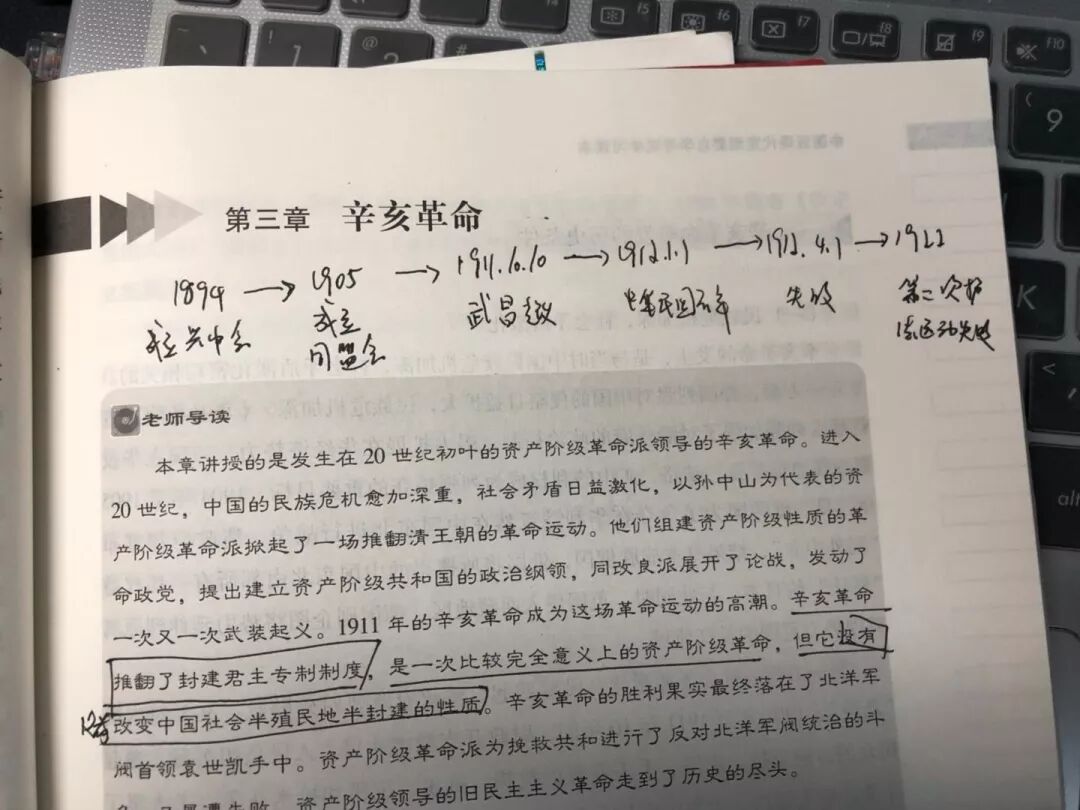 f4
f5
f6
f7
f8
f9
f10
!
1
@
2
#
(
9
K
<
alt
第三章 辛亥革命
1894 → 1905 → 1911.10.10 → 1912.1.1 → 1912.4.1 → 1922
成立兴中会
成立
同盟会
武昌起义
失败
第二次护
法运动失败
老师导读
本章讲授的是发生在 20 世纪初叶的资产阶级革命派领导的辛亥革命。进入
20 世纪，中国的民族危机愈加深重，社会矛盾日益激化，以孙中山为代表的资
产阶级革命派掀起了一场推翻清王朝的革命运动。他们组建资产阶级性质的革
命政党，提出建立资产阶级共和国的政治纲领，同改良派展开了论战，发动了
一次又一次武装起义。1911 年的辛亥革命成为这场革命运动的高潮。辛亥革命
推翻了封建君主专制制度，是一次比较完全意义上的资产阶级革命，但它没有
改变中国社会半殖民地半封建的性质。辛亥革命的胜利果实最终落在了北洋军
阀首领袁世凯手中。资产阶级革命派为挽救共和进行了反对北洋军阀统治的斗
争，又屡遭失败，资产阶级领导的旧民主主义革命走到了历史的尽头。